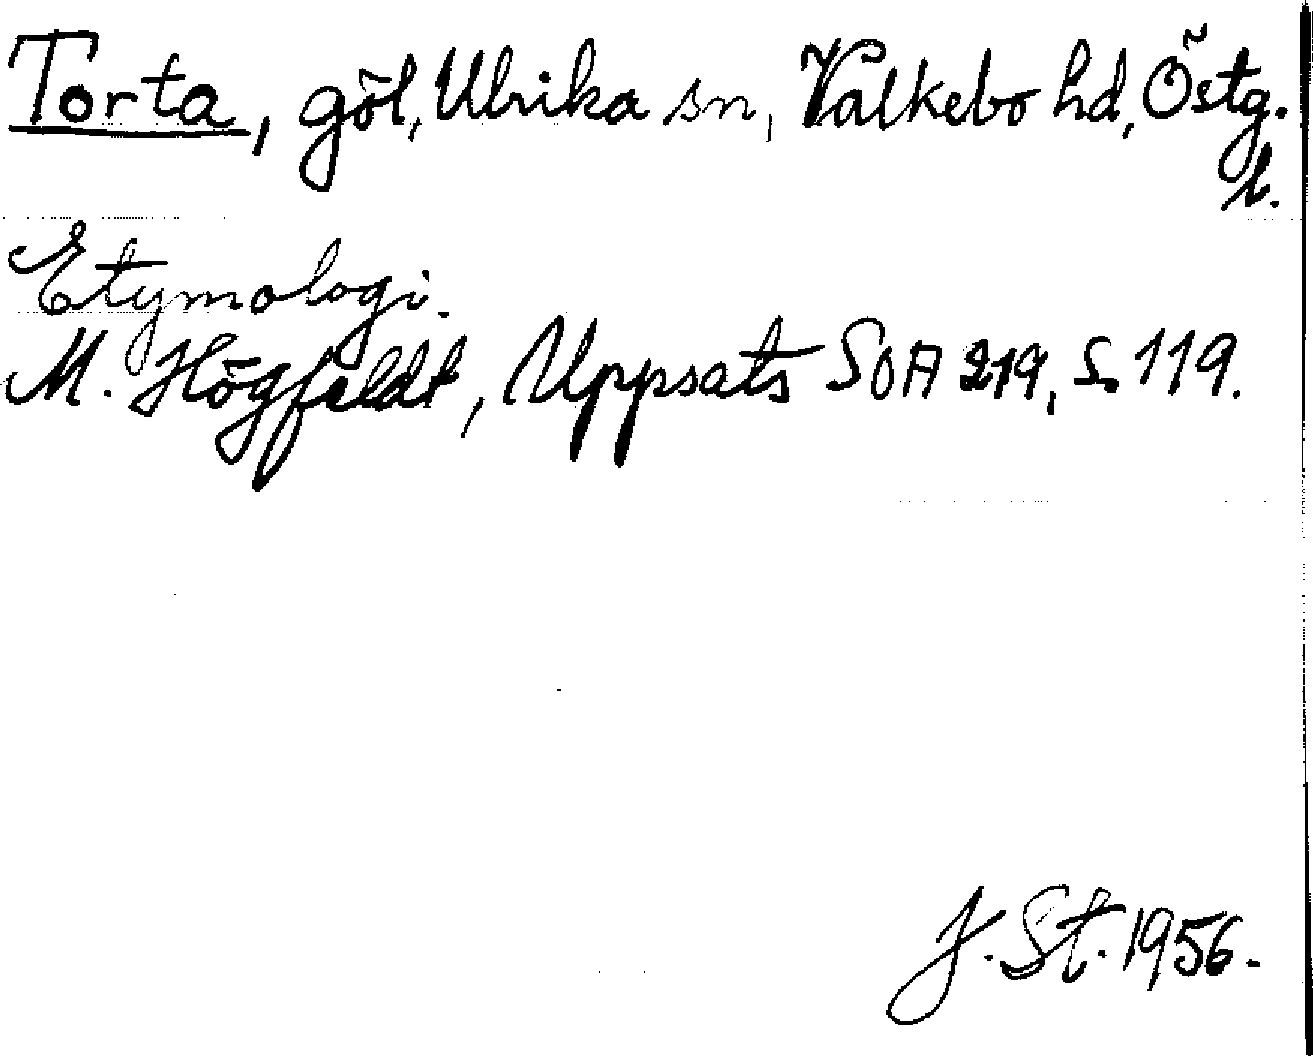 Torta, göl, Ulrika sn, Valkebo hd, Östg.
l.
Etymologi.
M. Högfeldt, Uppsats SOA 219, s. 119.
J. St. 1956.